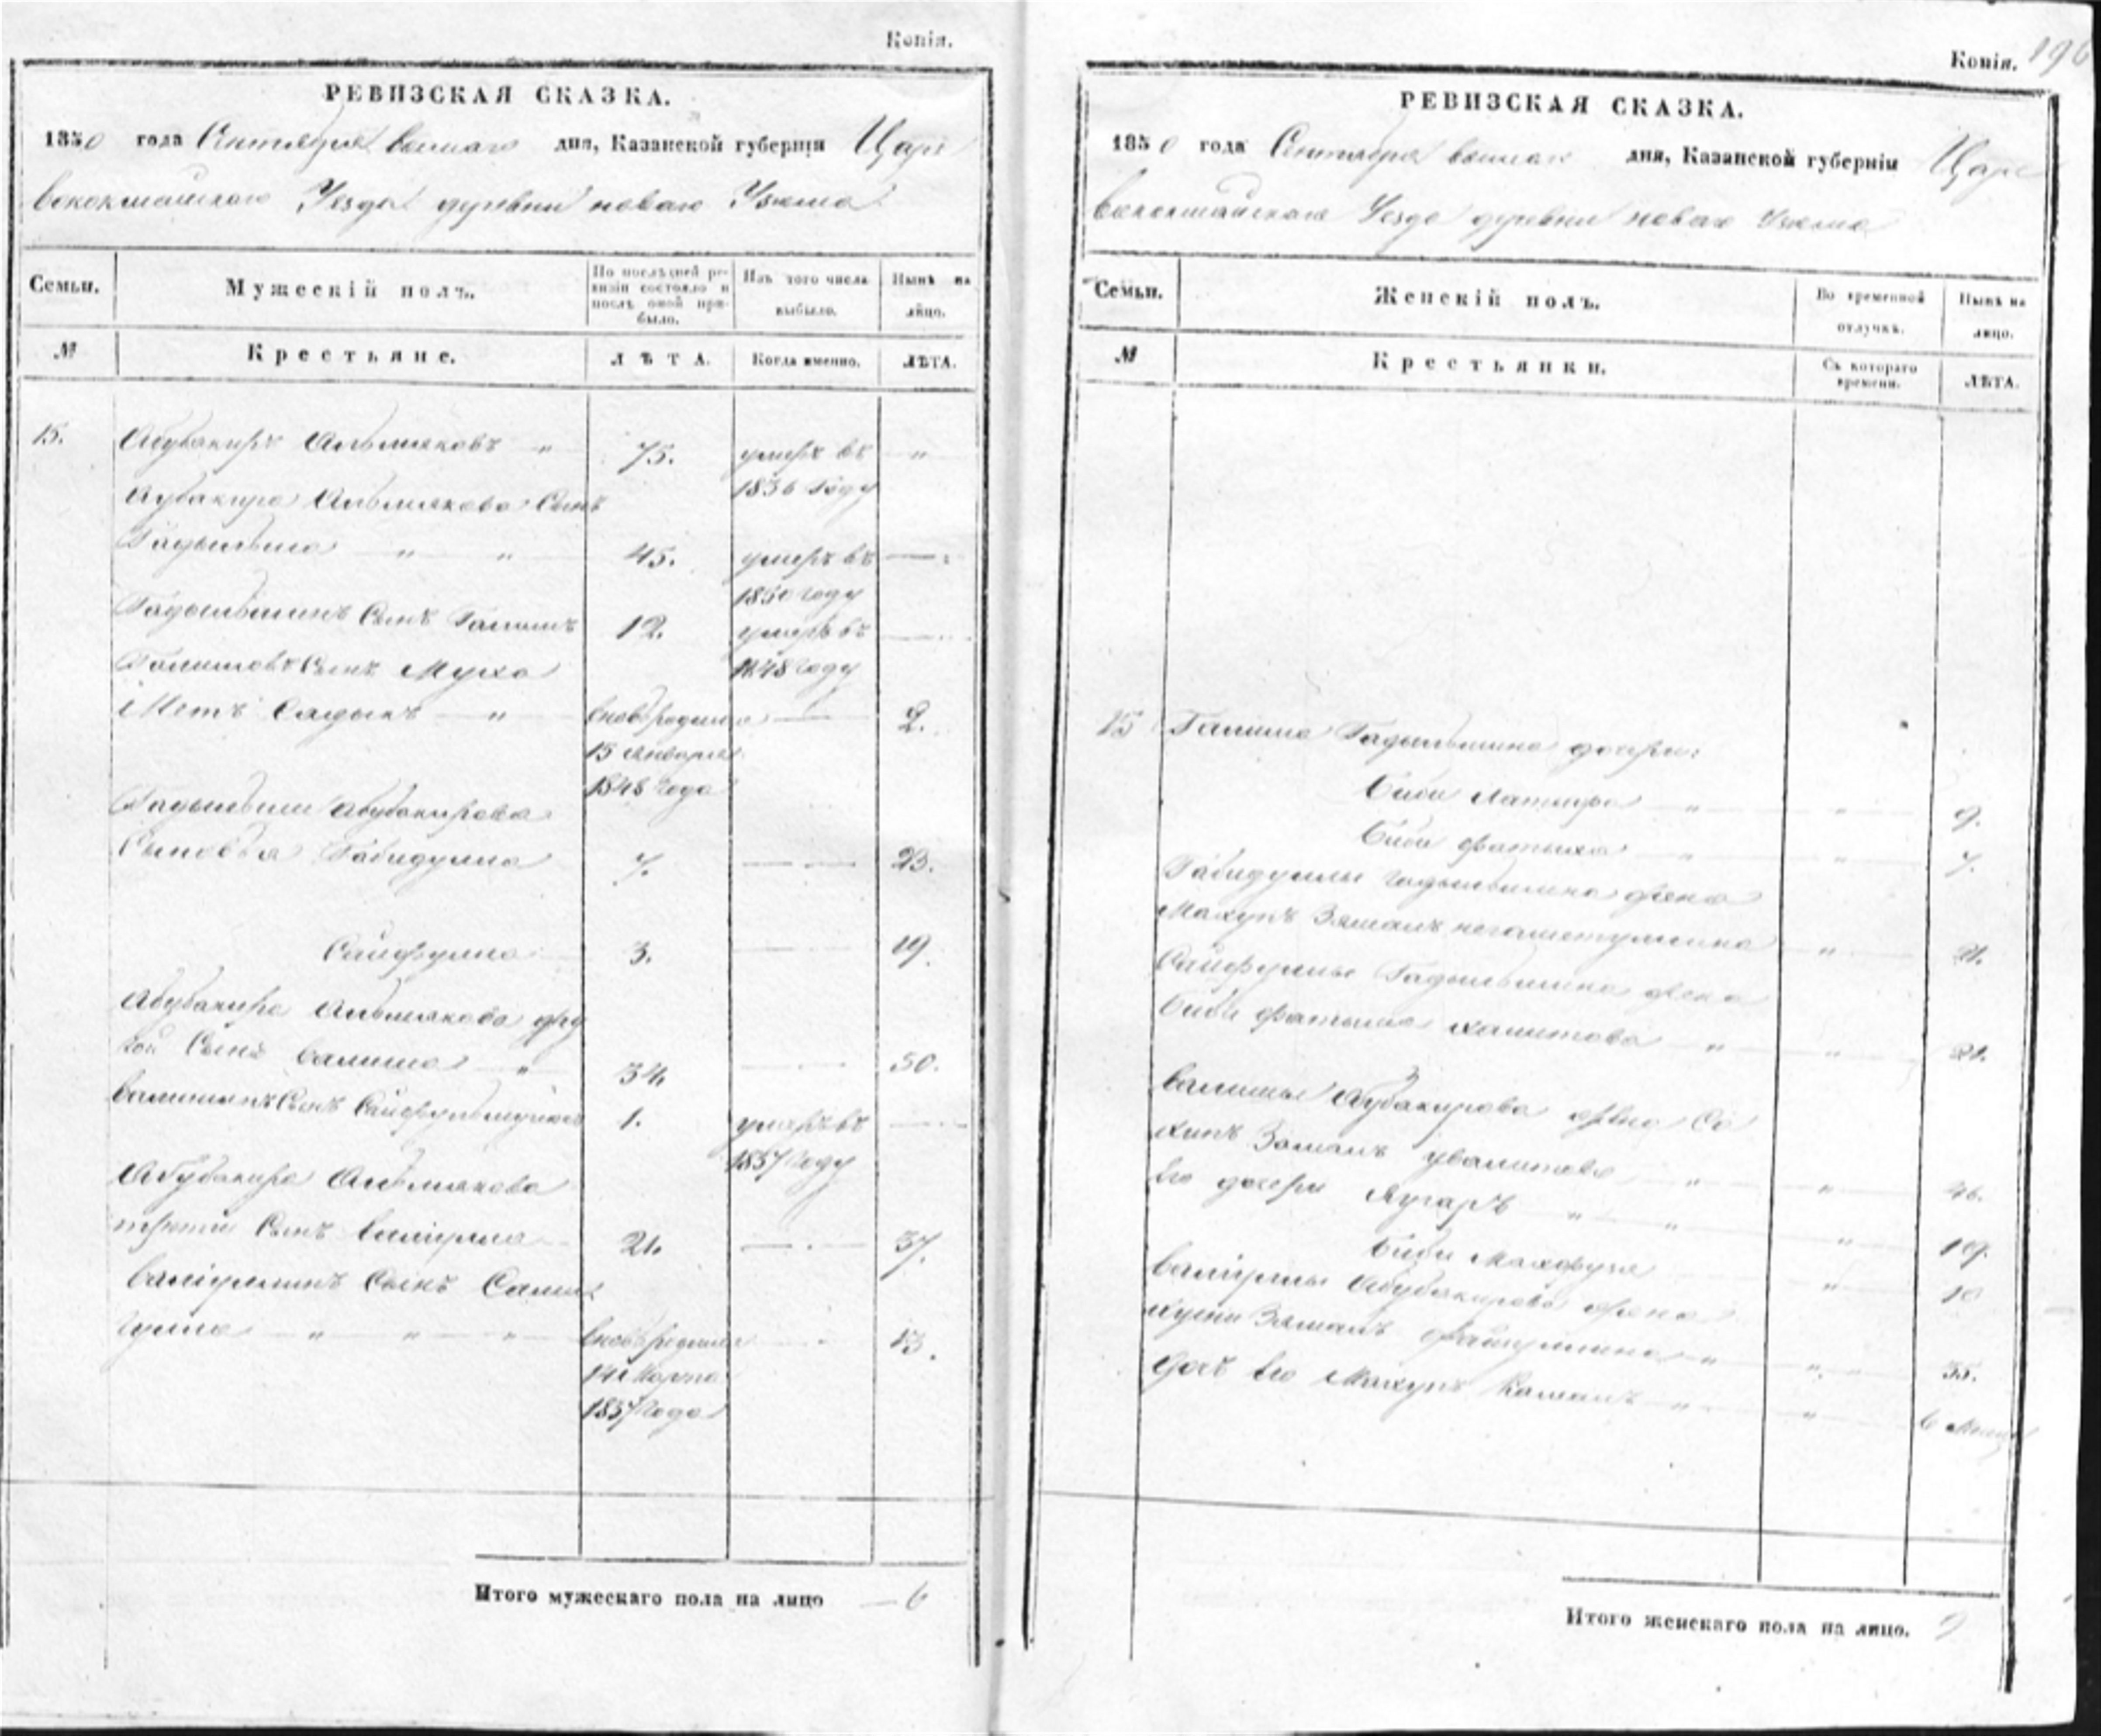 Копія.
РЕВИЗСКАЯ СКАЗКА.
1850 года Сентября дня, Казанской губерніи Царе
вококшайскаго Уезда деревни новаго
Семьи. Мужескій полъ. По послѣдней ре-визіи состояло и послѣ оной при-было. Изъ того числа выбыло. Нынѣ на лицо.
№ Крестьяне. ЛѢТА. Когда именно. ЛѢТА.
15. Абубакиръ Альмяковъ " 75. умеръ въ "
1836 Году
Абубакира Альмякова Сынъ
Гадыльша " " 45. умеръ въ
1850 году
Гадыльшинъ Сынъ Галимъ 12. умеръ въ
1848 Году
Галимовъ Сынъ Муха
Метъ Садыкъ " вновь родился 2.
15 Января
1848 Года
Гадыльши Абубакирова
Сыновья Габидулла 7. 23.
Сайфулла 3. 19.
Абубакира Альмякова дру
гой Сынъ Валиша " 34. 50.
Валишинъ Сынъ 1. умеръ въ
1837 Году
Абубакира Альмякова
третий Сынъ Валиулла 21. 37.
Валиуллинъ Сынъ Салих
" " " вновь родился 13.
14 Марта
1837 Года
Итого мужескаго пола на лицо 6
Копія. 196
РЕВИЗСКАЯ СКАЗКА.
1850 года Сентября дня, Казанской губерніи Царе
вококшайскаго Уезда деревни новаго
Семьи. Женскій полъ. Во временной отлучкѣ. Нынѣ на лицо.
№ Крестьянки. Съ котораго времени. ЛѢТА.
15 Галима Гадыльшина дочери:
Биби Латифа " " 9.
Биби Фатыха " " 7.
Габидуллы Гадыльшина жена
Махупъ Зямалъ " 21.
Сайфуллы Гадыльшина жена
Биби Фатыма Халитова " " 21.
Валиши Абубакирова жена Са
хипъ Зямалъ " " 46.
Его дочери " " " 19.
Биби Махфуза " 10
Валиуллы Абубакирова жена
Хусни Зямалъ Файзуллина " " 35.
Дочь Его Махупъ Камалъ " " 6
Итого женскаго пола на лицо. 9